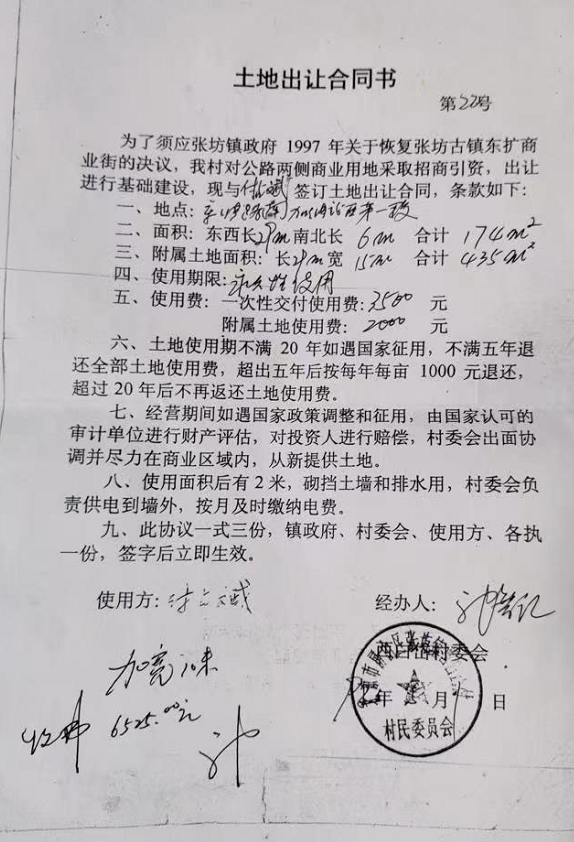 土地出让合同书
第22号
为了须应张坊镇政府 1997 年关于恢复张坊古镇东扩商
业街的决议，我村对公路两侧商业用地采取招商引资，出让
进行基础建设，现与 签订土地出让合同，条款如下：
一、地点：
二、面积：东西长29m南北长 6m 合计 174m²
三、附属土地面积：长29m宽 15m 合计 435m²
四、使用期限：永久性使用
五、使用费：一次性交付使用费：3500 元
附属土地使用费：2000 元
六、土地使用期不满 20 年如遇国家征用，不满五年退
还全部土地使用费，超出五年后按每年每亩 1000 元退还，
超过 20 年后不再返还土地使用费。
七、经营期间如遇国家政策调整和征用，由国家认可的
审计单位进行财产评估，对投资人进行赔偿，村委会出面协
调并尽力在商业区域内，从新提供土地。
八、使用面积后有 2 米，砌挡土墙和排水用，村委会负
责供电到墙外，按月及时缴纳电费。
九、此协议一式三份，镇政府、村委会、使用方、各执
一份，签字后立即生效。
使用方：
经办人：
西白岱村委会
年 月 日
村民委员会
加宽 米
6525.00元